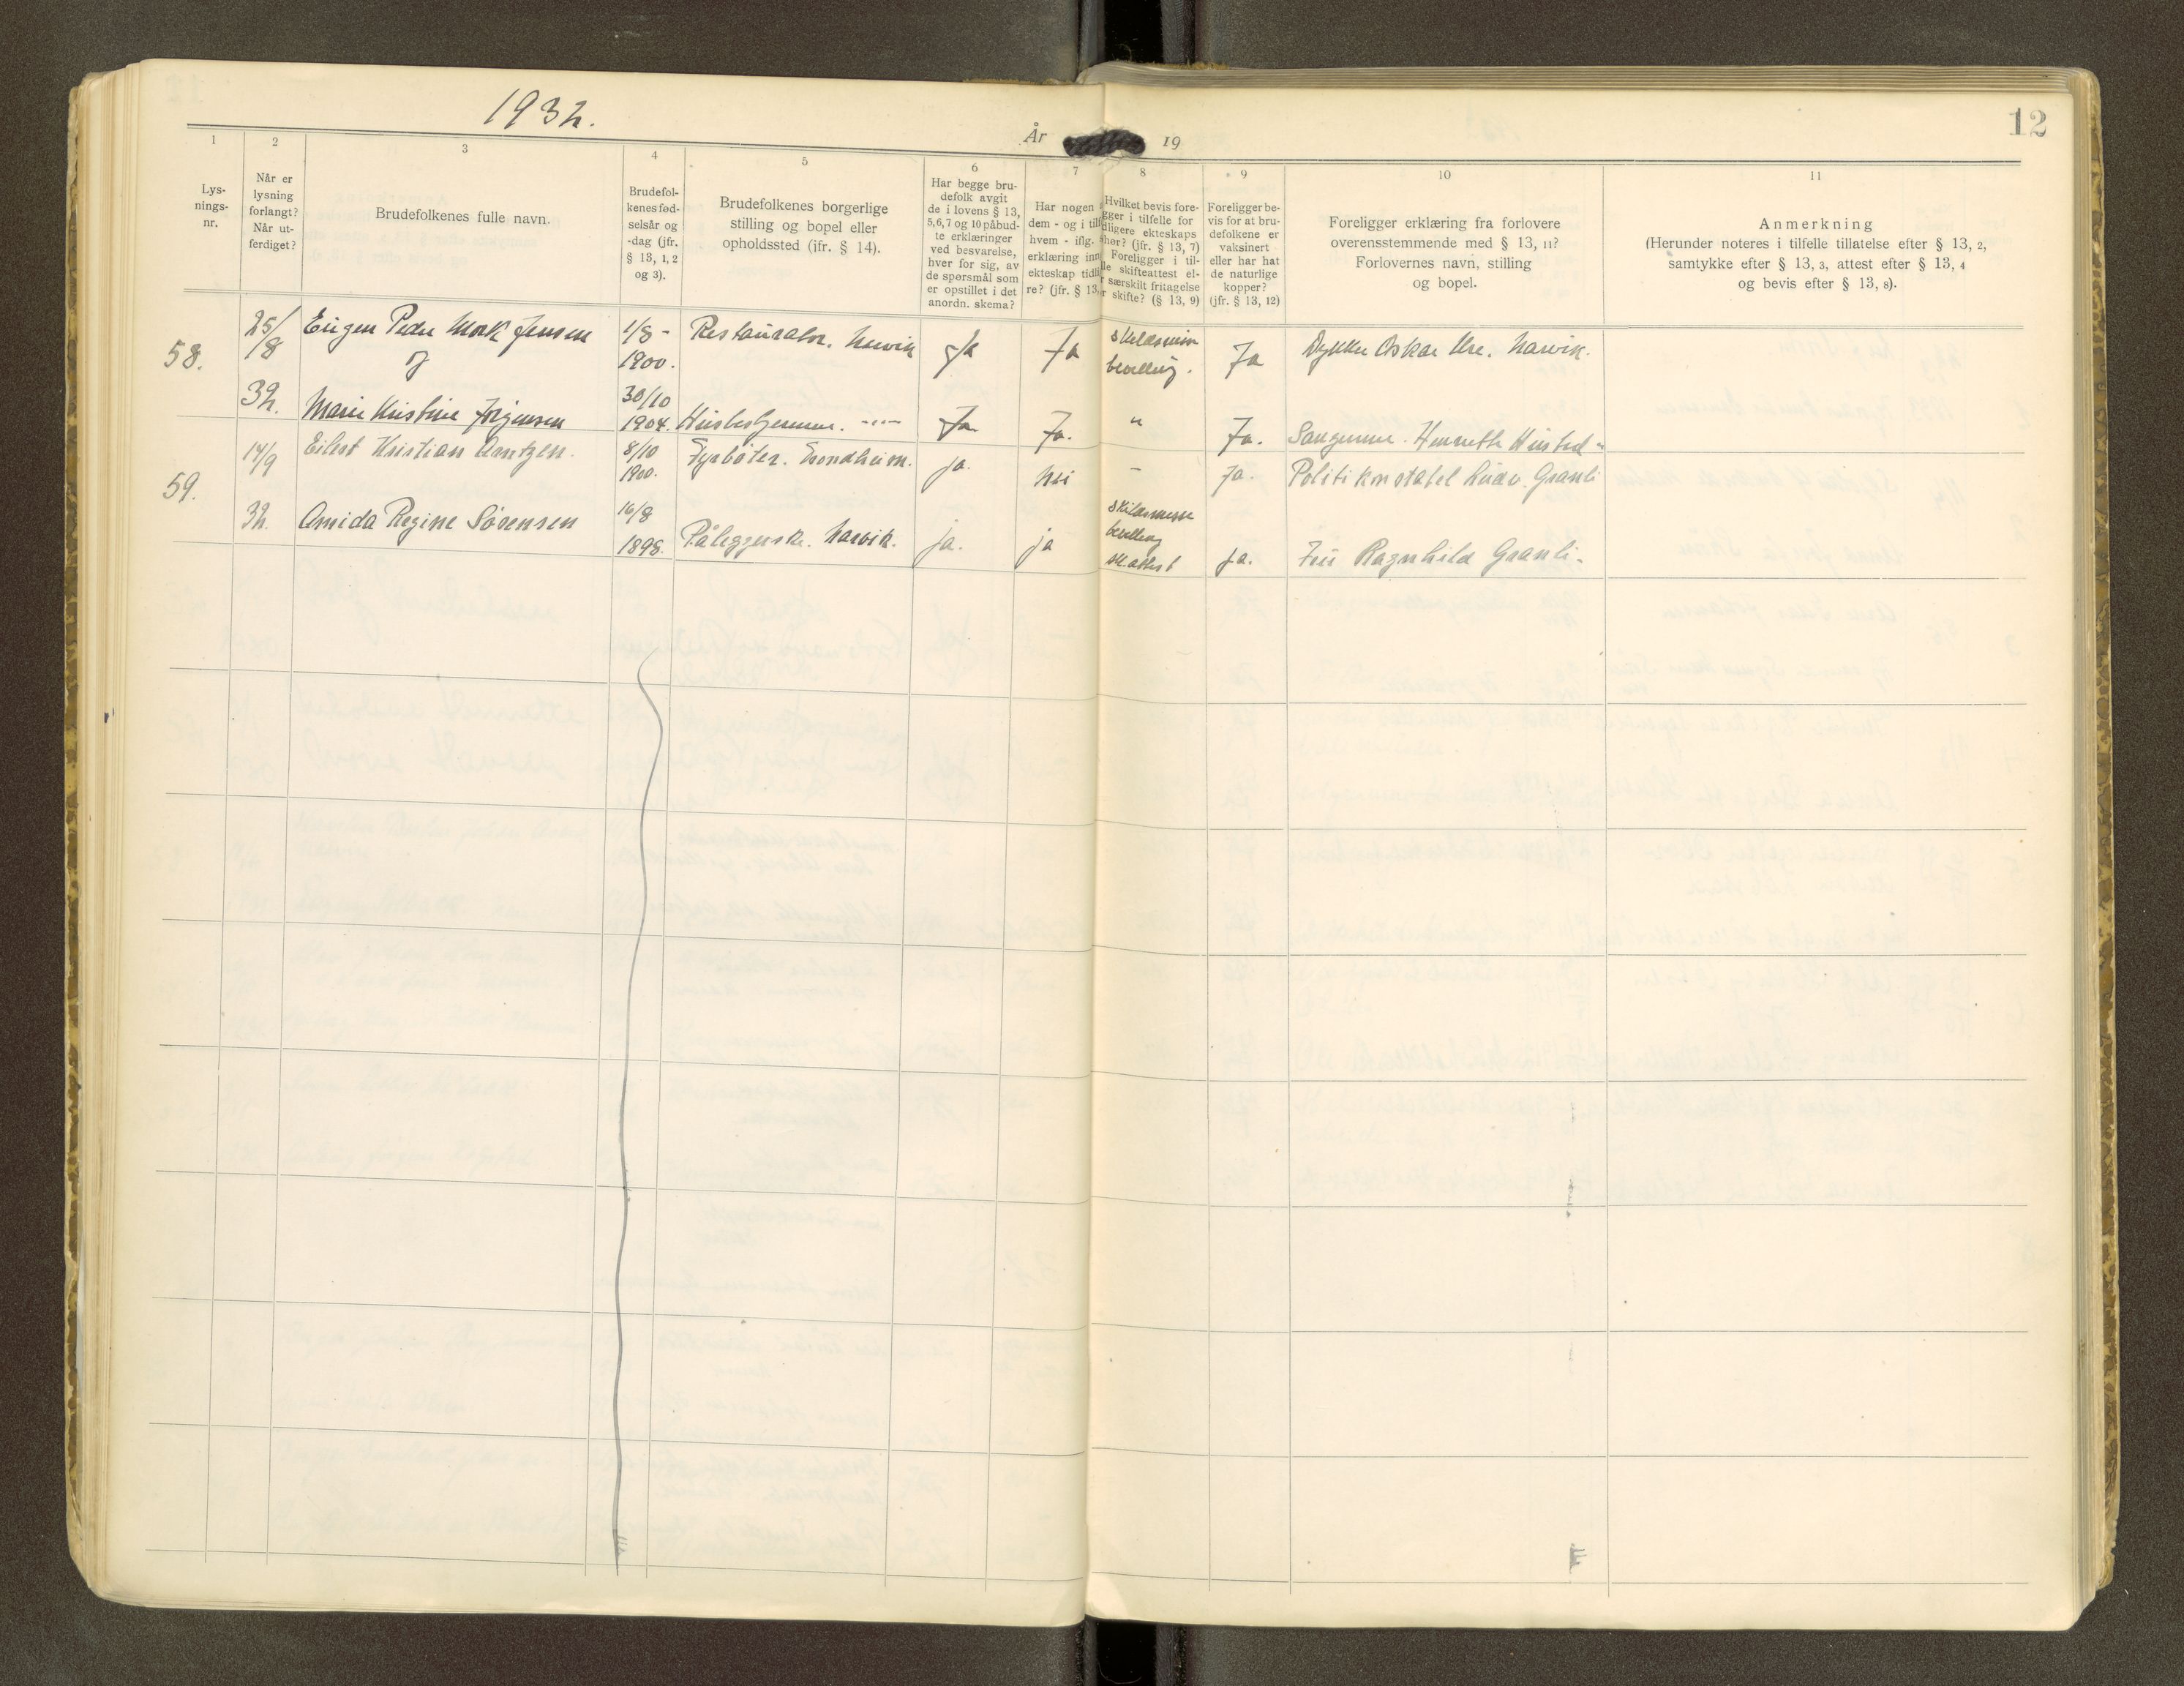 12
1932.
År 19
1 2 3 4 5 6 7 8 9 10 11
Lys-
nings-
nr.
Når er
lysning
forlangt?
Når ut-
ferdiget?
Brudefolkenes fulle navn.
Brudefol-
kenes fød-
selsår og
-dag (jfr.
§ 13, 1, 2
og 3).
Brudefolkenes borgerlige
stilling og bopel eller
opholdssted (jfr. § 14).
Har begge bru-
defolk avgit
de i lovens § 13,
5, 6, 7 og 10 påbud-
te erklæringer
ved besvarelse,
hver for sig, av
de spørsmål som
er opstillet i det
anordn. skema?
Har nogen
dem - og i tilf
hvem - iflg.
erklæring inn
ekteskap tidli
re? (jfr. § 13,
Hvilket bevis fore-
gger i tilfelle for
dligere ekteskaps
hør? (jfr. § 13, 7)
Foreligger i til-
le skifteattest el-
r særskilt fritagelse
r skifte? (§ 13, 9)
Foreligger be-
vis for at bru-
defolkene er
vaksinert
eller har hat
de naturlige
kopper?
(jfr. § 13, 12)
Foreligger erklæring fra forlovere
overensstemmende med § 13, 11?
Forlovernes navn, stilling
og bopel.
Anmerkning
(Herunder noteres i tilfelle tillatelse efter § 13, 2,
samtykke efter § 13, 3, attest efter § 13, 4
og bevis efter § 13, 8).
58. 25/8 Eugen Peder Mork Jensen 1/8 - 1900. Restauratør. Narvik Ja Ja bevilling. Ja Dykker Oskar Narvik.
og
32. Marie Kristine Jørgensen 30/10 1904. Husbestyrerinne. -"- Ja Ja. " Ja. Henriette Husted "
59. 14/9 Eilert Kristian Arntzen. 8/10 1900. Fyrbøter. Trondheim. ja. nei - Ja. Politikonstabel Ludv. Granli
32. Amida Regine Sørensen 16/8 1898. Påleggerske. Narvik. ja. ja Skilsmisse
bevilling
sk.attest ja. Fru Ragnhild Granli.